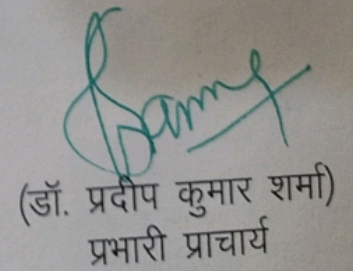 (डॉ. प्रदीप कुमार शर्मा)
प्रभारी प्राचार्य